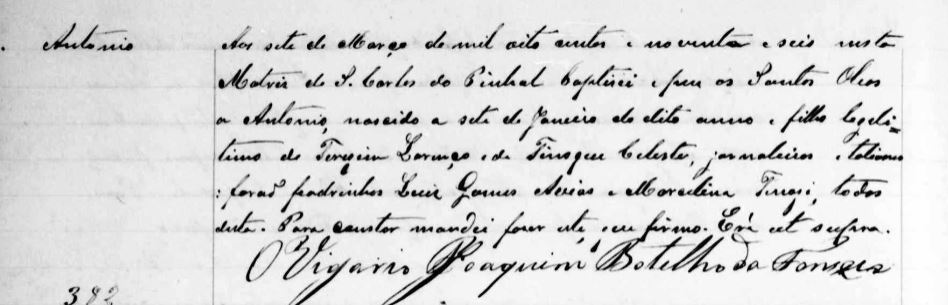 Antonio
Aos sete de Março de mil oito centos e noventa e seis nesta
Matriz de S. Carlos do Pinhal baptisei e puz os Santos Oleos
a Antonio, nascido a sete de Janeiro do dito anno e filho legi=
timo de Lorenço e de Celeste, jornaleiros italianos
: forão padrinhos Luiz Gomes e Marcelina todos
desta. Para constar mandei fazer este, que firmo. Era ut supra.
O Vigario Joaquim Botelho da Fonseca
382